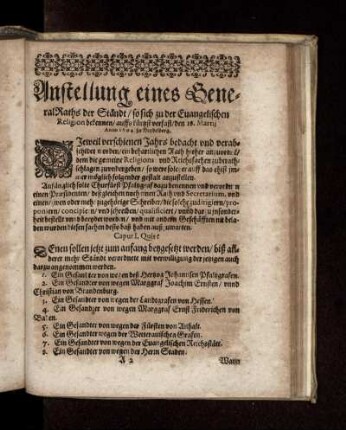 Anstellung eines Gene-
ral Raths der Ständt / so sich zu der Euangelischen
Religion bekennen / auffs kürtzst verfast / den 18. Martij
Anno 1603. zu Heydelberg.
DJeweil verschienen Jahrs bedacht und verab-
schidet worden, ein beharrlichen Rath hieher
dem die gemeine Religions und Reichssachen zuberath-
schlagen
müglich folgender gestalt anzustellen.
Anfänglich solte Churfürstl. Pfaltzgraf dazu benennen und verordnen
einen Praesidenten, deßgleichen noch einen Rath und Secretarien, und
einen / zwen oder mehr zugehörige Schreiber, die solche zu dirigiern / pro-
poniern / concipiern / und schreiben / qualificiert / und darzu insonder-
heit bestellt und beeydet werden / und mit andern Geschäfften nit bela-
den wurden diesen sachen desto baß haben außzuwarten.
Caput I. Quis?
DEnen sollen jetzt zum anfang beygesetzt werden / biß al-
lerer mehr Ständt vermittelt mit verwilligung derjenigen auch
darzu angenommen werden.
1. Ein Gesandter von wegen deß Hertzog Johannsen Pfaltzgrafen.
2. Ein Gesandter von wegen Marggraf Joachim Ernsten / unnd
Christian von Brandenburg.
3. Ein Gesandter von wegen der Landgrafen von Hessen.
4. Ein Gesandter von wegen Marggraf Ernst Friderichen von
Baden.
5. Ein Gesandter von wegen der Fürsten von Anhalt.
6. Ein Gesandter wegen der Wetterauischen Grafen.
7. Ein Gesandter von wegen der Euangelischen Reichsstätt.
8. Ein Gesandter von wegen der Herrn Staden.
A 2
Wann